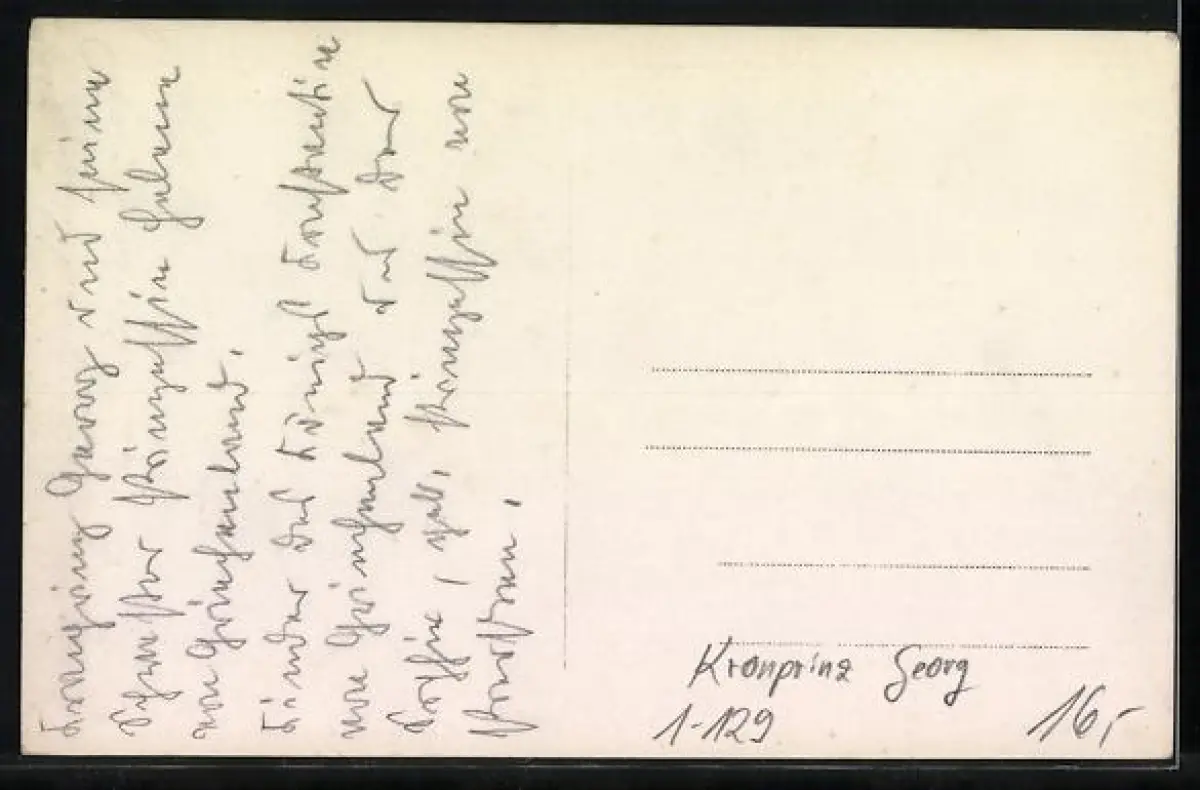 Kronprinz Georg und seine
Schwester Prinzessin Helene
von Griechenland.
Kinder des Königs Konstantin
von Griechenland und der
Sophie, geb. Prinzessin von
Preußen.
Kronprinz Georg
1-129
16,-